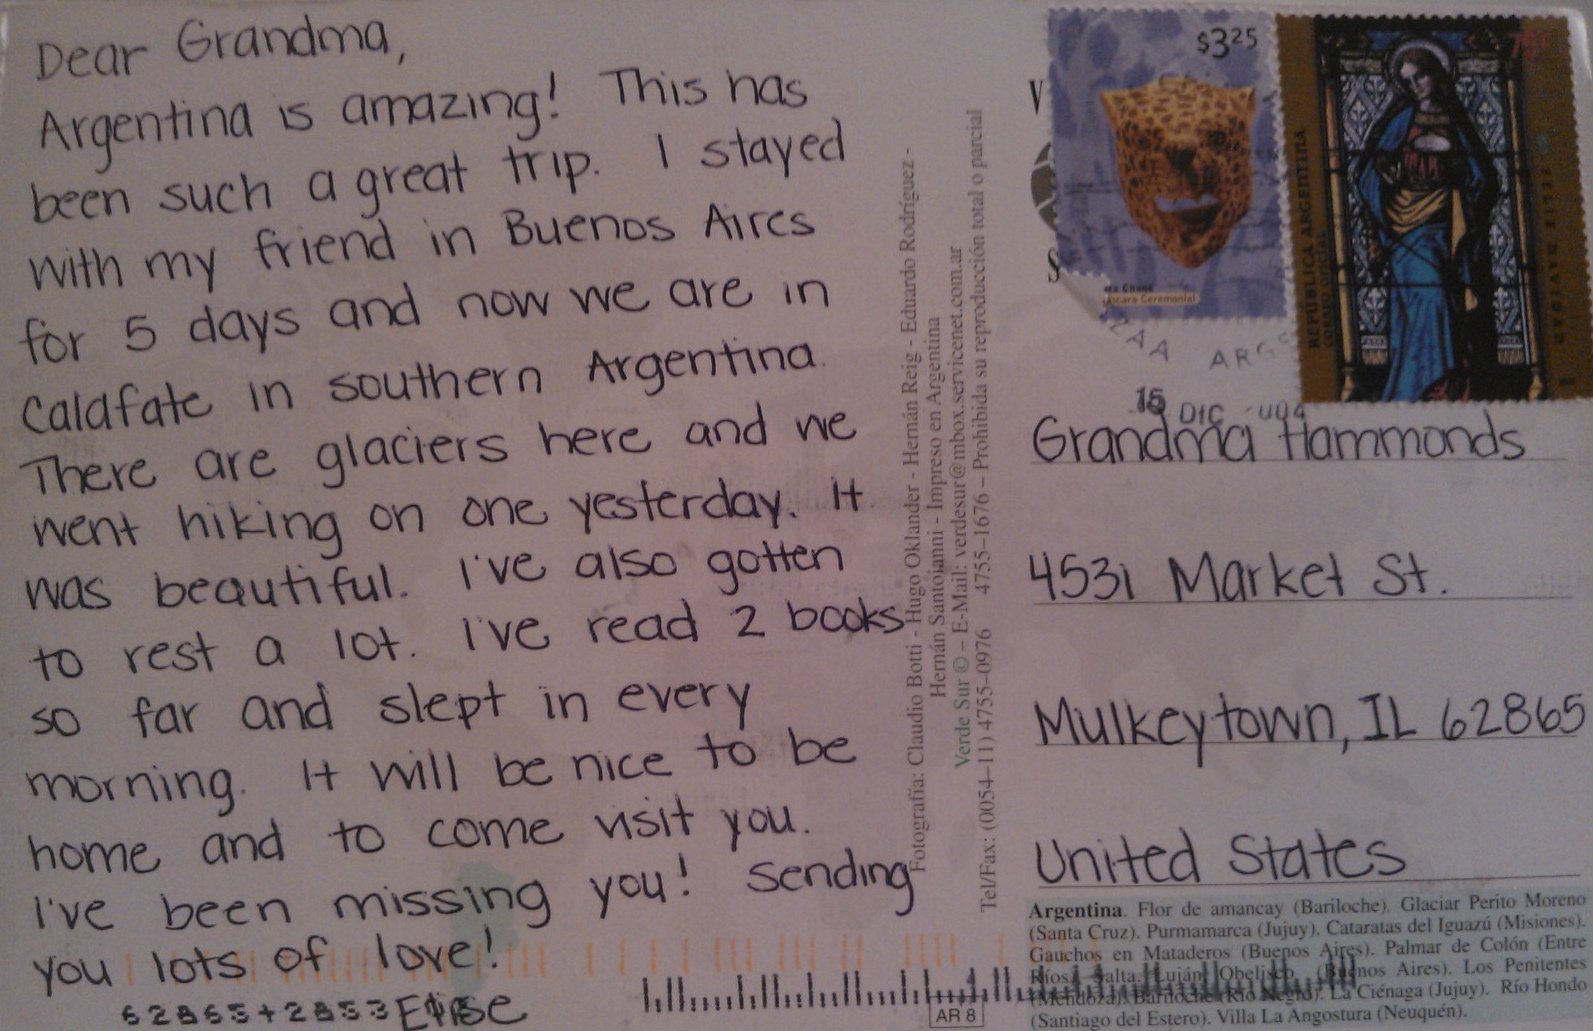 Dear Grandma,
Argentina is amazing! This has
been such a great trip. I stayed
with my friend in Buenos Aires
for 5 days and now we are in
Calafate in southern Argentina.
There are glaciers here and we
went hiking on one yesterday. It
was beautiful. I've also gotten
to rest a lot. I've read 2 books
so far and slept in every
morning. It will be nice to be
home and to come visit you.
I've been missing you! Sending
you lots of love!
Elise
62865+2853
Fotografía: Claudio Botti - Hugo Oklander - Hernán Reig - Eduardo Rodríguez -
Hernán Santoianni - Impreso en Argentina
Verde Sur © – E-Mail: verdesur@mbox.servicenet.com.ar
Tel/Fax: (0054–11) 4755–0976 4755–1676 – Prohibida su reproducción total o parcial
V
S
$3.25
Ceremonial
75c
REPUBLICA ARGENTINA
CORREO OFICIAL
FELIZ NAVIDAD
ARGE
15 DIC
Grandma Hammonds
4531 Market St.
Mulkeytown, IL 62865
United States
Argentina. Flor de amancay (Bariloche). Glaciar Perito Moreno
(Santa Cruz). Purmamarca (Jujuy). Cataratas del Iguazú (Misiones).
Gauchos en Mataderos (Buenos Aires). Palmar de Colón (Entre
Ríos). Salta. Luján. Obelisco (Buenos Aires). Los Penitentes
(Mendoza). Bariloche (Río Negro). La Ciénaga (Jujuy). Río Hondo
(Santiago del Estero). Villa La Angostura (Neuquén).
AR 8